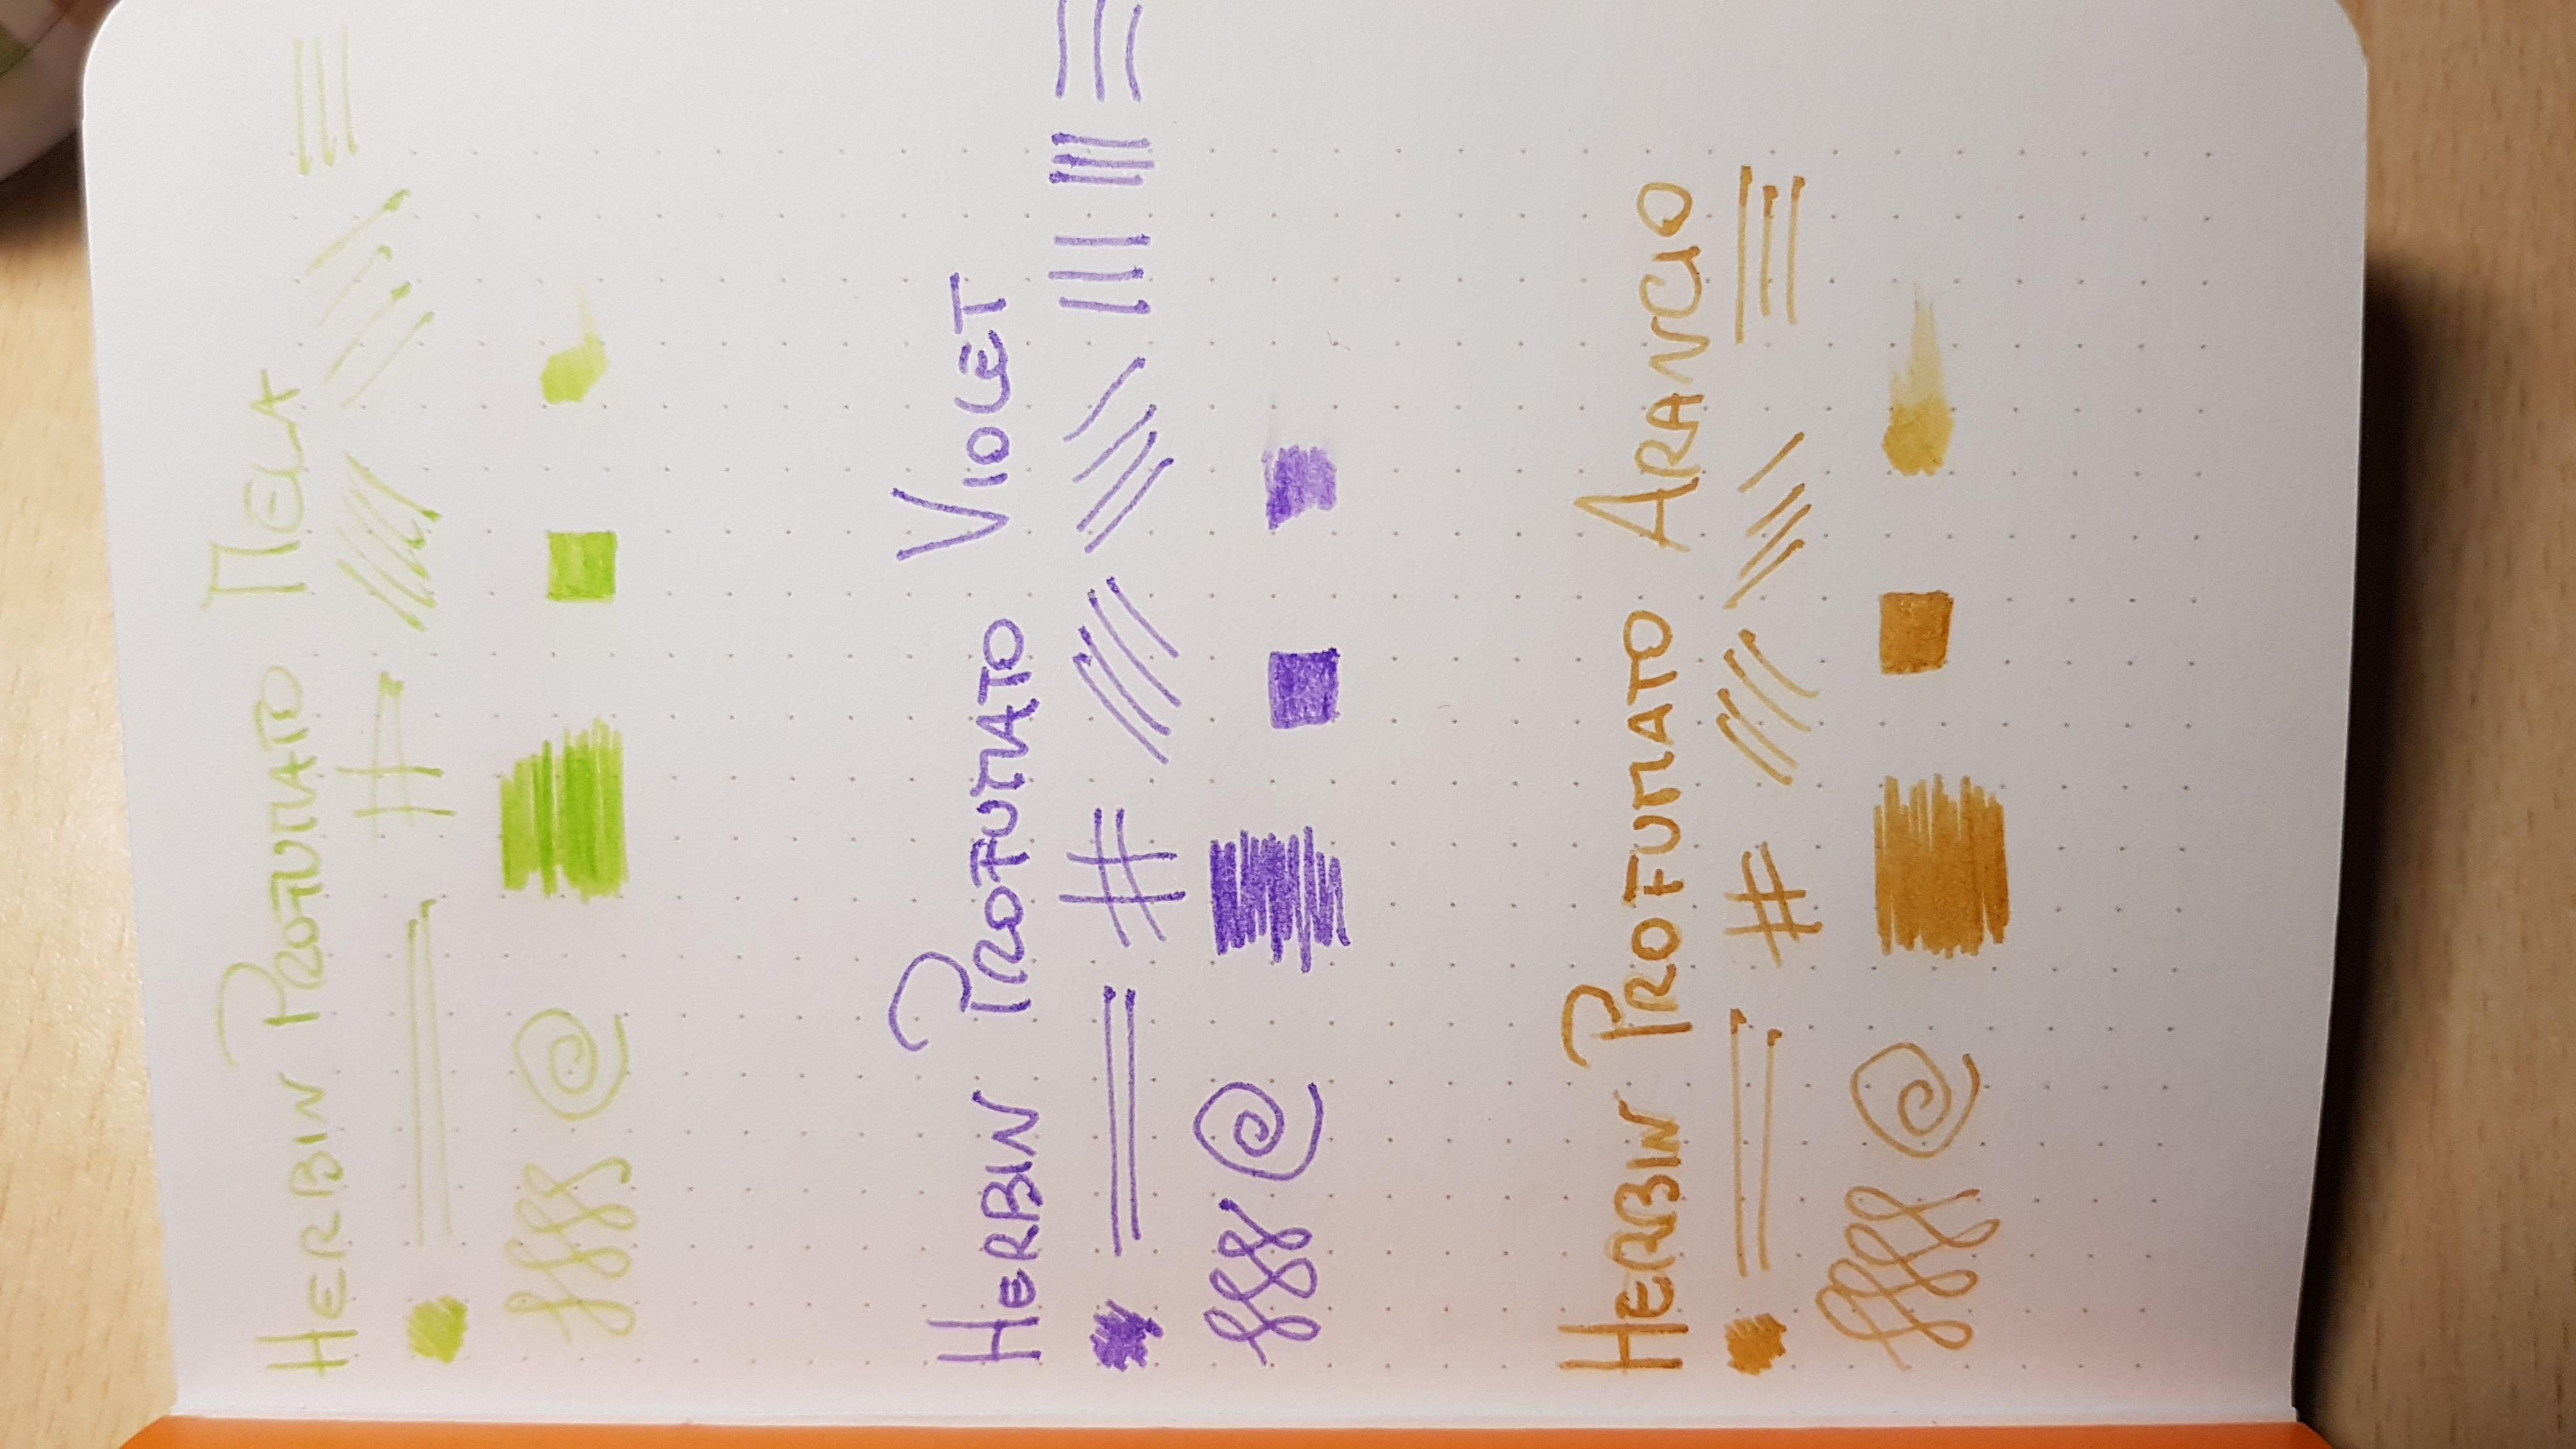 HERBIN PROFUMATO MELA
HERBIN PROFUMATO VIOLET
HERBIN PROFUMATO ARANCIO